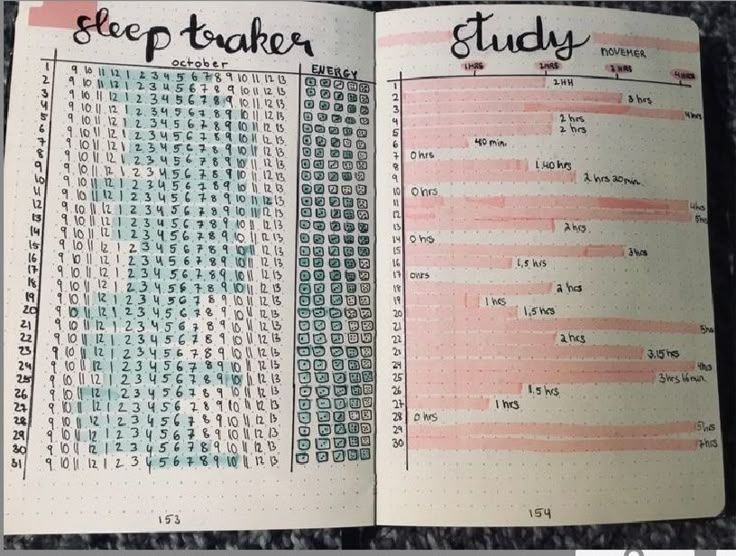 sleep traker
october
ENERGY
1 9 10 11 12 1 2 3 4 5 6 7 8 9 10 11 12 13
2 9 10 11 12 1 2 3 4 5 6 7 8 9 10 11 12 13
3 9 10 11 12 1 2 3 4 5 6 7 8 9 10 11 12 13
4 9 10 11 12 1 2 3 4 5 6 7 8 9 10 11 12 13
5 9 10 11 12 1 2 3 4 5 6 7 8 9 10 11 12 13
6 9 10 11 12 1 2 3 4 5 6 7 8 9 10 11 12 13
7 9 10 11 12 1 2 3 4 5 6 7 8 9 10 11 12 13
8 9 10 11 12 1 2 3 4 5 6 7 8 9 10 11 12 13
9 9 10 11 12 2 3 4 5 6 7 8 9 10 11 12 13
10 9 10 11 12 1 2 3 4 5 6 7 8 9 10 11 12 13
11 9 10 11 12 1 2 3 4 5 6 7 8 9 10 11 12 13
12 9 10 11 12 1 2 3 4 5 6 7 8 9 10 11 12 13
13 9 10 11 12 1 2 3 4 5 6 7 8 9 10 11 12 13
14 9 10 11 12 1 2 3 4 5 6 7 8 9 10 11 12 13
15 9 10 11 12 2 3 4 5 6 7 8 9 10 11 12 13
16 9 10 11 12 1 2 3 4 5 6 7 8 9 10 11 12 13
17 9 10 11 12 1 2 3 4 5 6 7 8 9 10 11 12 13
18 9 10 11 12 1 2 3 4 5 6 7 8 9 10 11 12 13
19 9 10 11 12 1 2 3 4 5 6 7 8 9 10 11 12 13
20 9 10 11 12 1 2 3 4 5 6 7 8 9 10 11 12 13
21 9 10 11 12 1 2 3 4 5 6 7 8 9 10 11 12 13
22 9 10 11 12 1 2 3 4 5 6 7 8 9 10 11 12 13
23 9 10 11 12 1 2 3 4 5 6 7 8 9 10 11 12 13
24 9 10 11 12 1 2 3 4 5 6 7 8 9 10 11 12 13
25 9 10 11 12 1 2 3 4 5 6 7 8 9 10 11 12 13
26 9 10 11 12 1 2 3 4 5 6 7 8 9 10 11 12 13
27 9 10 11 12 1 2 3 4 5 6 7 8 9 10 11 12 13
28 9 10 11 12 1 2 3 4 5 6 7 8 9 10 11 12 13
29 9 10 11 12 1 2 3 4 5 6 7 8 9 10 11 12 13
30 9 10 11 12 1 2 3 4 5 6 7 8 9 10 11 12 13
31 9 10 11 12 1 2 3 4 5 6 7 8 9 10 11 12 13
153
study
NOVEMBER
1HRS 2HRS 3 HRS 4 HRS
1 2HH
2 3 hrs
3 4hrs
4 2 hrs
5 2 hrs
6 40 min.
7 0 hrs
8 1,40 hrs
9 2 hrs 20min.
10 0 hrs
11 4hrs
12 5hrs
13 2 hrs
14 0 hrs
15 3hrs
16 1,5 hrs
17 0hrs
18 2 hrs
19 1 hrs
20 1,5 hrs
21 5hrs
22 2 hrs
23 3,15 hrs
24 4hrs
25 3 hrs 16 min
26 1,5 hrs
27 1 hrs
28 0 hrs
29 5hrs
30 7hrs
154